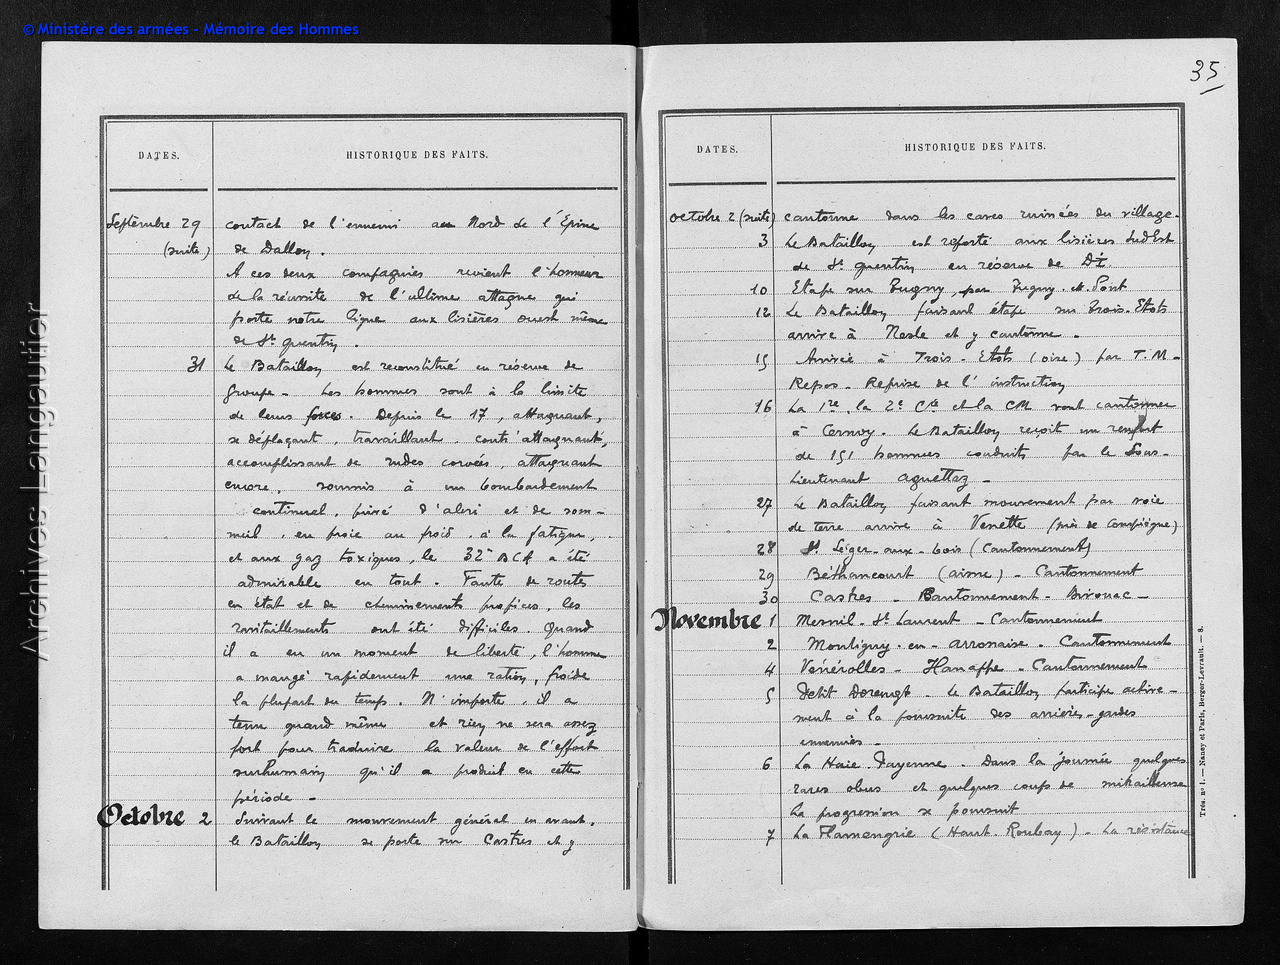 ©Ministère des armées - Mémoire des Hommes
Archives Langautier
35
DATES. HISTORIQUE DES FAITS.
Septembre 29 contact de l'ennemi au Nord de l'Épine
(suite) de Dallon.
A ces deux compagnies revient l'honneur
de la réussite de l'ultime attaque qui
porte notre ligne aux lisières ouest même
de St quentin.
31 Le Bataillon est reconstitué en réserve de
Groupe - Les hommes sont à la limite
de leurs forces. Depuis le 17, attaquant,
se déplaçant, travaillant, contr'attaquant,
accomplissant de rudes corvées, attaquant
encore, soumis à un bombardement
continuel, privé d'abri et de som-
meil, en proie au froid, à la fatigue,
et aux gaz toxiques, le 32e BCA a été
admirable en tout. Faute de routes
en état et de cheminements propices, les
ravitaillements ont été difficiles. Quand
il a eu un moment de liberté, l'homme
a mangé rapidement une ration, froide
la plupart du temps. N'importe, il a
tenu quand même et rien ne sera assez
fort pour traduire la valeur de l'effort
surhumain qu'il a produit en cette
période -
Octobre 2 Suivant le mouvement général en avant,
le Bataillon se porte sur Castres et y
DATES. HISTORIQUE DES FAITS.
octobre 2 (suite) cantonne dans les caves ruinées du village.
3 Le Bataillon est reporté aux lisières Sud Est
de St quentin en réserve de DI.
10 Etape sur Tugny, par Tugny et Pont
12 Le Bataillon faisant étape sur Trois-Etots
arrive à Nesle et y cantonne.
15 Arrivée à Trois-Etots (oise) par T.M-
Repos - Reprise de l'instruction
16 La 1re, la 2e Cie et la CM vont cantonner
à Cernoy. Le Bataillon reçoit un renfort
de 151 hommes conduits par le Sous-
Lieutenant Aguettaz -
27 Le Bataillon faisant mouvement par voie
de terre arrive à Venette (près de Compiègne)
28 St Léger-aux-bois (Cantonnement)
29 Béthancourt (aisne) - Cantonnement
30 Castres - Cantonnement - Bivouac -
Novembre 1 Mesnil-St Laurent - Cantonnement
2 Montigny-en-arrouaise - Cantonnement
4 Vénérolles - Hanappe - Cantonnement
5 Petit Dorengt - Le Bataillon participe active-
ment à la poursuite des arrières-gardes
ennemies -
6 La Haie Payenne - Dans la journée quelques
rares obus et quelques coups de mitrailleuse
La progression se poursuit
7 La Flamengrie (Haut Roubay) - La résistance
Trés. n° 1. — Nancy et Paris, Berger-Levrault. — 8.